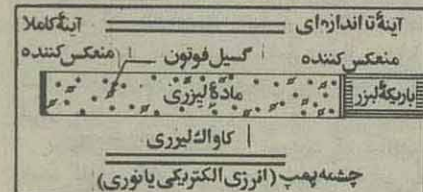 آینهٔ تا اندازه‌ای آینهٔ کاملا
منعکس کننده گسیل فوتون منعکس کننده
باریکهٔ لیزر مادهٔ لیزری
کاواک لیزری
چشمه پمپ (انرژی الکتریکی یا نوری)